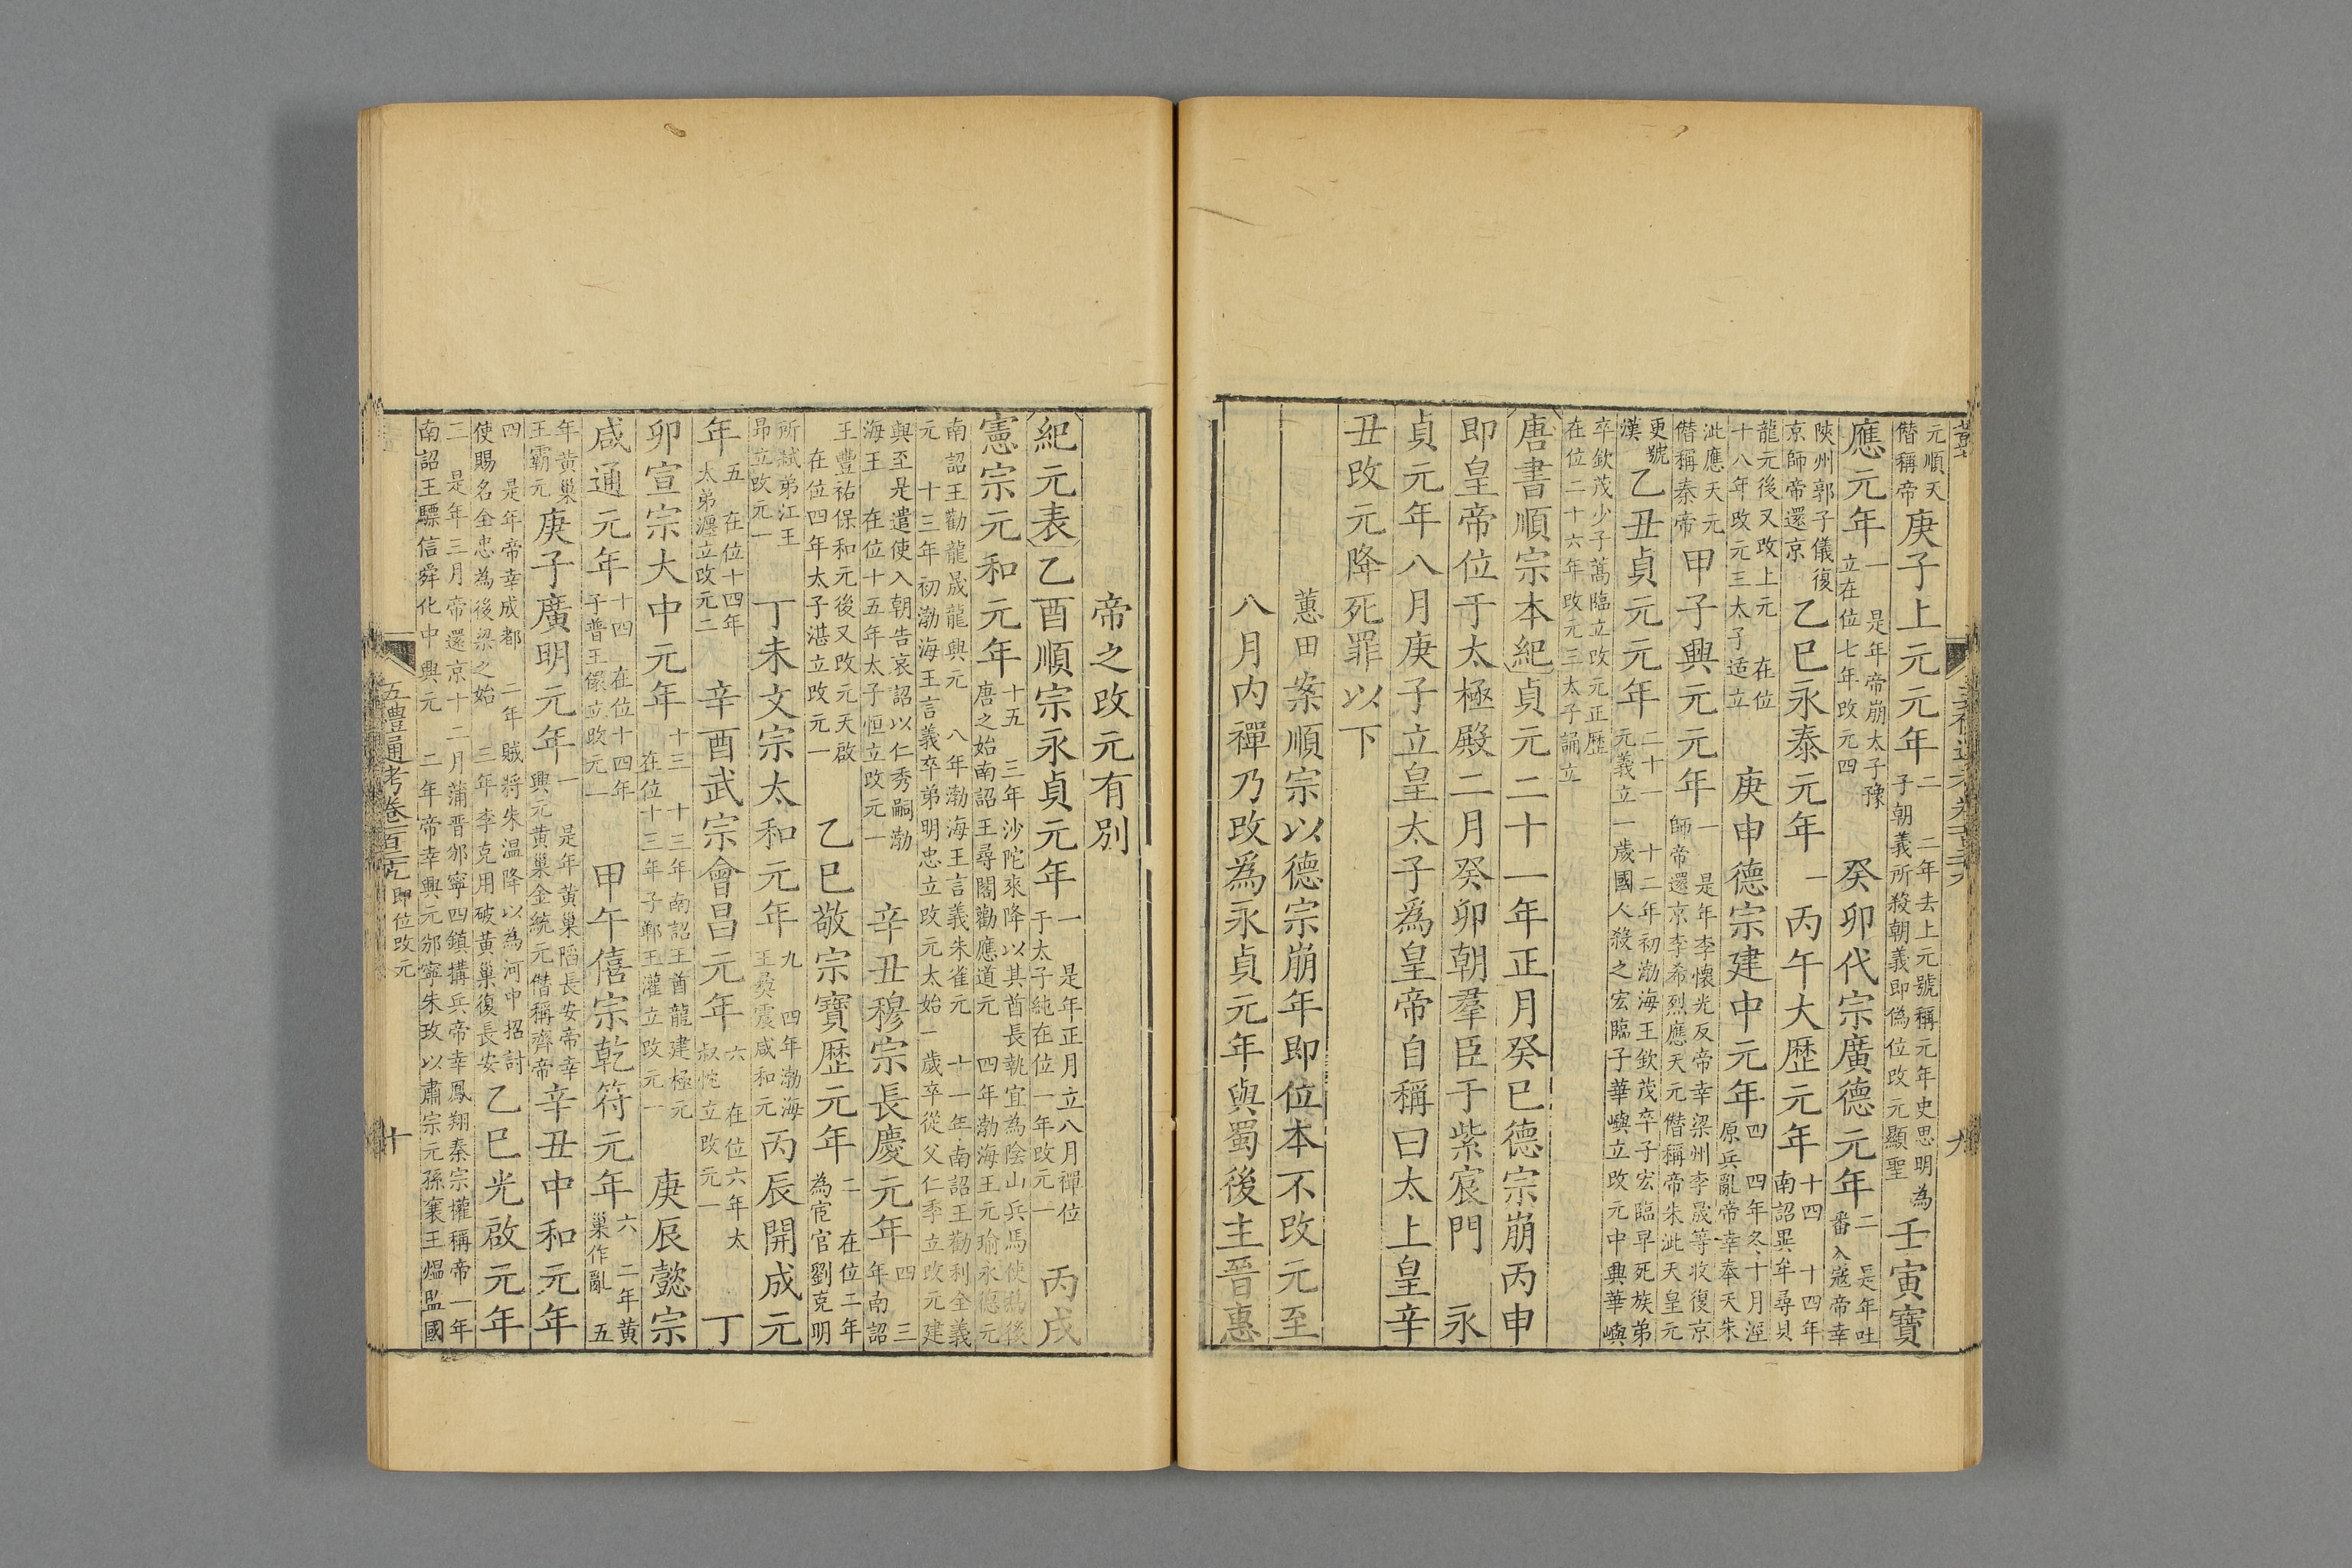 元順天僭稱帝庚子上元元年二 二年去上元號稱元年史思明為子朝義所殺朝義即偽位改元顯聖壬寅寶
應元年一 是年帝崩太子豫立在位七年改元四 癸卯代宗廣德元年二 是年吐番入寇帝幸
陝州郭子儀復京師帝還京乙巳永泰元年一 丙午大歷元年十四 十四年南詔異牟尋見
龍元後又改上元 在位十八年改元三太子适立 庚申德宗建中元年四 四年冬十月涇原兵亂帝幸奉天朱
泚應天元僭稱秦帝甲子興元元年一 是年李懷光反帝幸梁州李晟等收復京師帝還京李希烈應天元僭稱帝朱泚天皇元
更號漢乙丑貞元元年二十一 十二年初渤海王欽茂卒子宏臨早死族弟元義立一歲國人殺之宏臨子華嶼立改元中興華嶼
卒欽茂少子嵩臨立改元正歷 在位二十六年改元三太子誦立
唐書順宗本紀貞元二十一年正月癸巳德宗崩丙申
即皇帝位于太極殿二月癸卯朝羣臣于紫宸門 永
貞元年八月庚子立皇太子為皇帝自稱曰太上皇辛
丑改元降死罪以下
蕙田案順宗以德宗崩年即位本不改元至
八月內禪乃改為永貞元年與蜀後主晉惠
九
帝之改元有別
紀元表乙酉順宗永貞元年一 是年正月立八月禪位于太子純在位一年改元一 丙戌
憲宗元和元年十五 三年沙陀來降以其酋長執宜為陰山兵馬使為後唐之始南詔王尋閣勸應道元 四年渤海王元瑜永德元
南詔王勸龍晟龍興元 八年渤海王言義朱雀元 十一年南詔王勸利全義元 十三年初渤海王言義卒弟明忠立改元太始一歲卒從父仁季立改元建
與至是遣使入朝告哀詔以仁秀嗣渤海王 在位十五年太子恒立改元一 辛丑穆宗長慶元年四 三年南詔
王豐祐保和元後又改元天啟 在位四年太子湛立改元一 乙巳敬宗寶歷元年二 在位二年為宦官劉克明
所弒弟江王昂立改元一 丁未文宗太和元年九 四年渤海王彝震咸和元丙辰開成元
年五 在位十四年太弟瀍立改元二 辛酉武宗會昌元年六 在位六年太叔忱立改元一 丁
卯宣宗大中元年十三 十三年南詔王酋龍建極元 在位十三年子鄆王灌立改元一 庚辰懿宗
咸通元年十四 在位十四年子普王儇立改元一 甲午僖宗乾符元年六 二年黃巢作亂 五
年黃巢王霸元庚子廣明元年一 是年黃巢陷長安帝幸興元黃巢金統元僭稱齊帝辛丑中和元年
四 是年帝幸成都 二年賊將朱溫降以為河中招討使賜名全忠為後梁之始 三年李克用破黃巢復長安乙巳光啟元年
二 是年三月帝還京十二月蒲晉邠寧四鎮搆兵帝幸鳳翔秦宗權稱帝一年南詔王驃信舜化中興元 二年帝幸興元邠寧朱玫以肅宗元孫襄王熅監國
五禮通考卷一百二十九即位改元
十